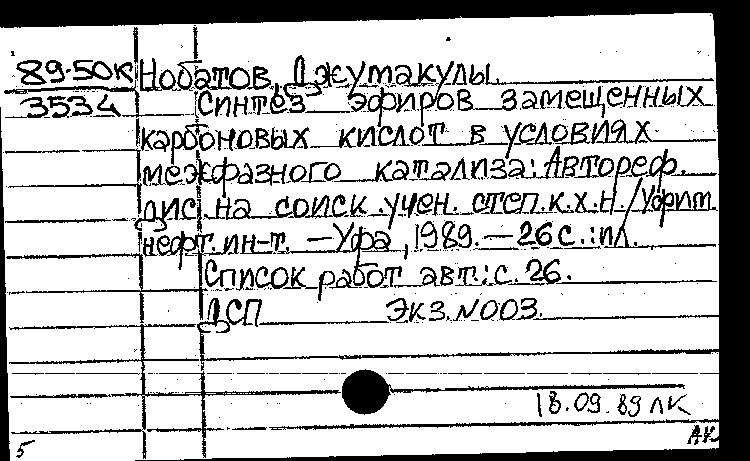 89-50К Нобатов, Джумакулы.
3534 Синтез эфиров замещенных
карбоновых кислот в условиях
межфазного катализа: Автореф.
дис. на соиск. учен. степ. к.х.н. /Уфим.
нефт. ин-т. — Уфа, 1989. — 26 с. : ил.
Список работ авт.: с. 26.
ДСП Экз. N003.
18.09.89 ЛК
АК
5